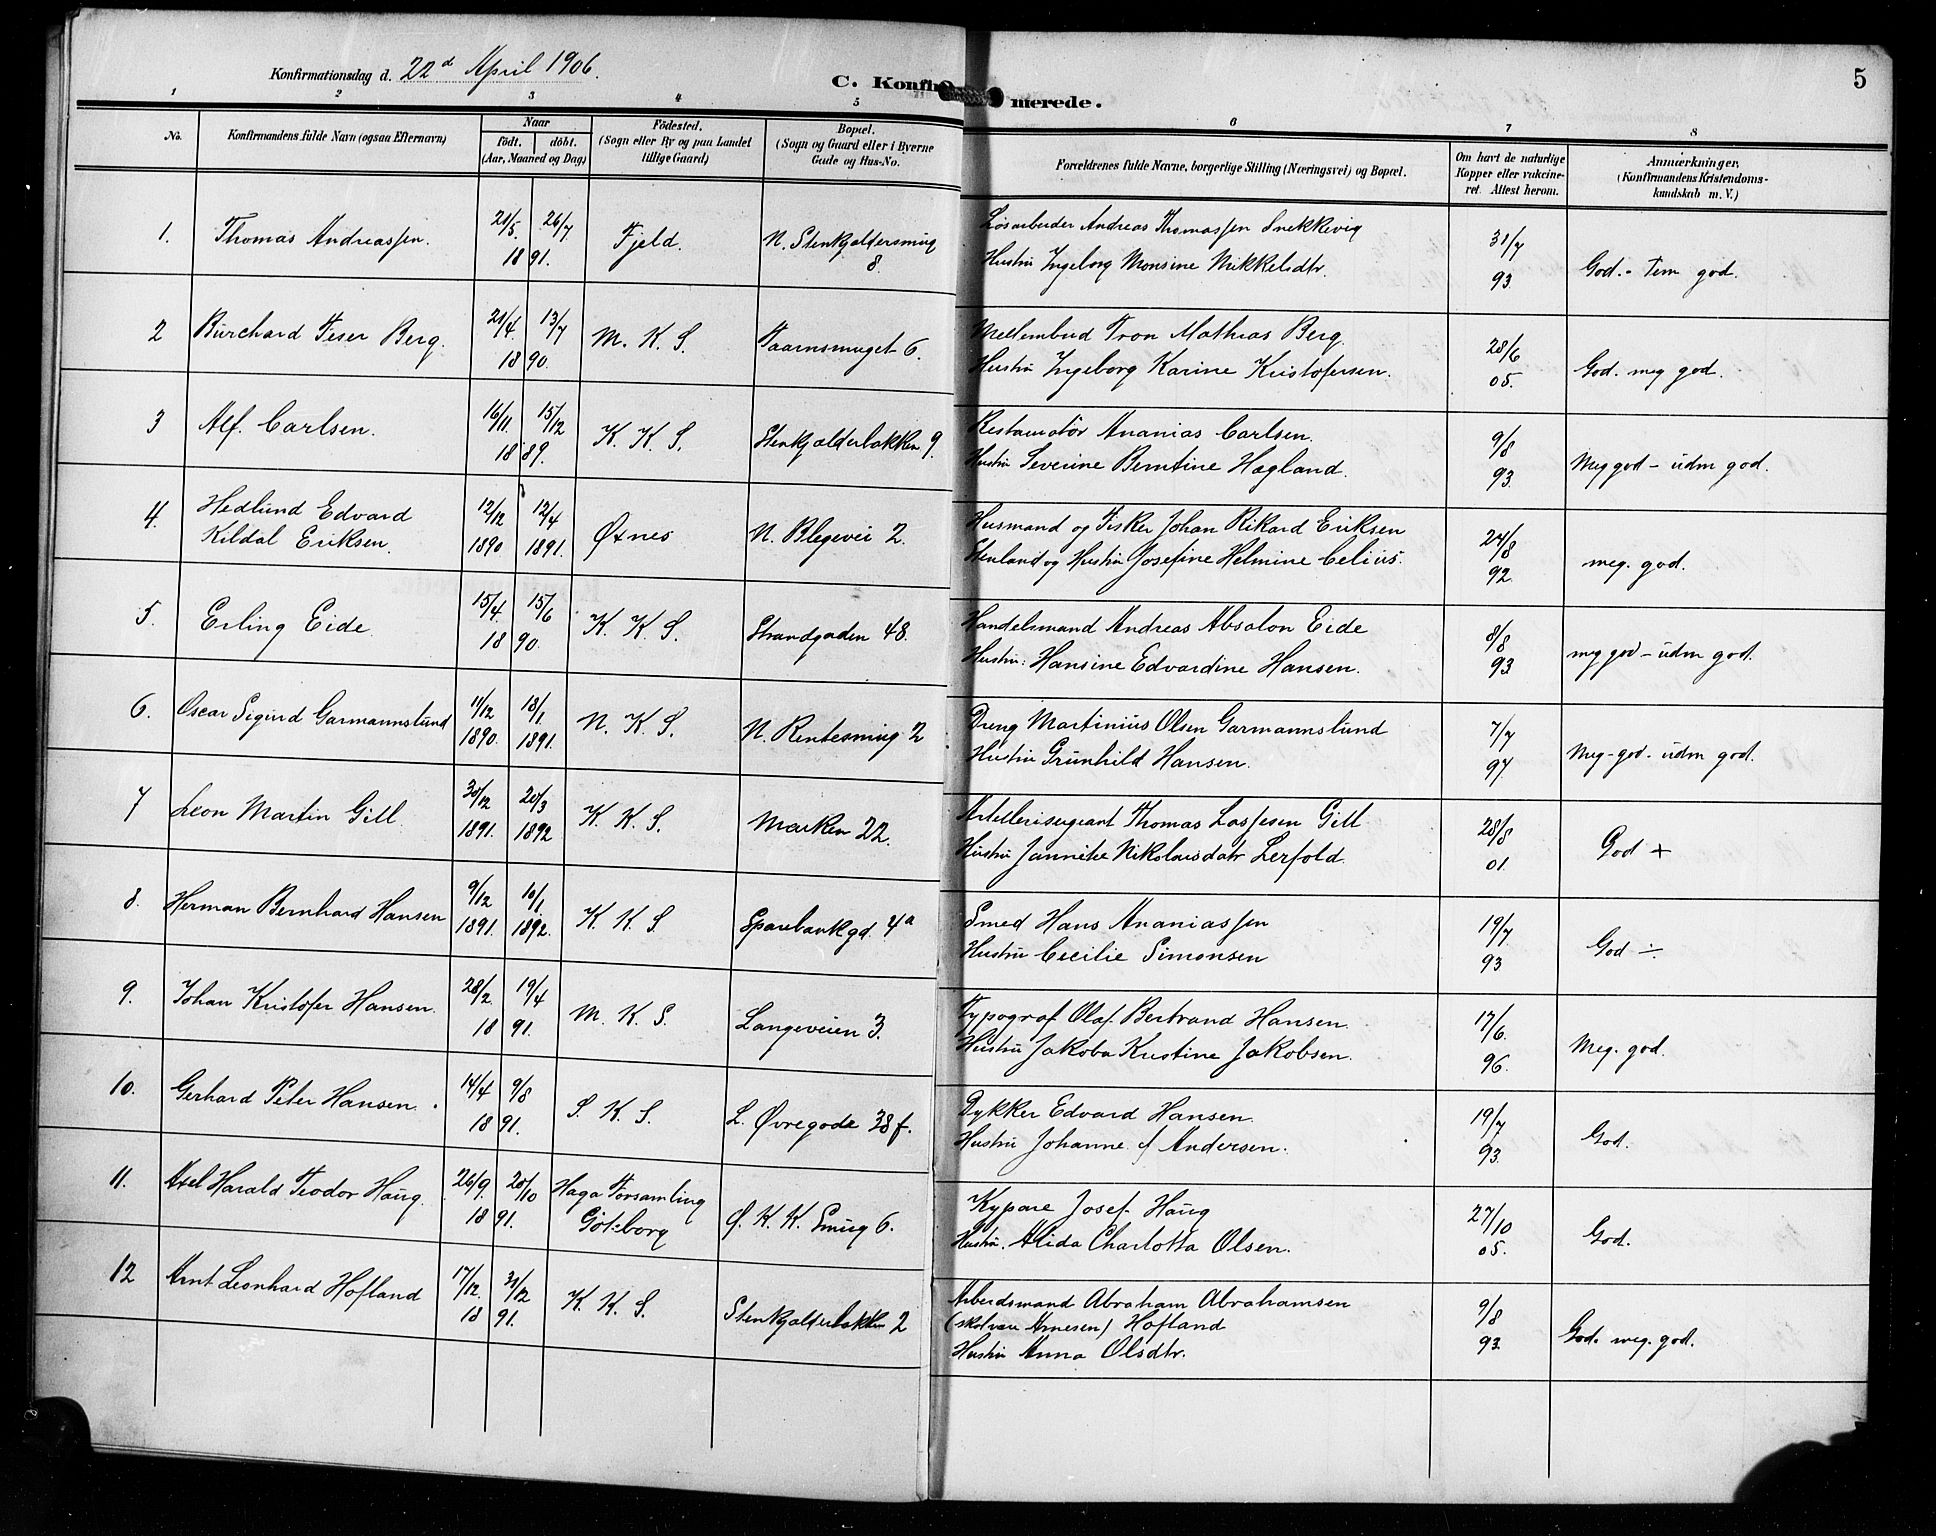 Konfirmationsdag d. 22d April 1906.
C. Konfirmerede.
5
1 2 3 4 5 6 7 8
No.
Konfirmandens fulde Navn (ogsaa Efternavn)
Naar
født. døbt.
(Aar, Maaned og Dag)
Fødested.
(Sogn eller By og paa Landet
tillige Gaard)
Bopæl.
(Sogn og Gaard eller i Byerne
Gade og Hus-No.
Forældrenes fulde Navne, borgerlige Stilling (Næringsvei) og Bopæl.
Om havt de naturlige
Kopper eller vakcine-
ret. Attest herom.
Anmærkninger,
(Konfirmandens Kristendoms-
kundskab m. V.)
1. Thomas Andreassen. 21/5. 26/7 1891. Fjeld. N. Stenkjaldersmug 8.
Løsarbeider Andreas Thomassen Snekkevig
Hustru Ingeborg Monsine Mikkelsdtr.
31/7 93. God. - Tem god.
2 Burchard Feser Berg. 21/4. 13/7 1890. M. K. S. Taarnsmuget 6.
Mellembud Tron Mathias Berg.
Hustru Ingeborg Karine Kristofersen.
28/6 05. God. meg god.
3 Alf. Carlsen. 16/11. 15/12 1889. K. K. S. Stenkjalderbakken 9.
Restauratør Ananias Carlsen.
Hustru Severine Berntine Hagland.
9/8 93. Meg god - udm god.
4. Hedlund Edvard
Kildal Eriksen. 12/12 1890 12/4 1891. Øxnes N. Blegevei 2.
Husmand og Fisker Johan Rikard Eriksen
Stenland og Hustru Josefine Helmine Celius.
24/8 92. meg. god.
5. Erling Eide. 15/4 15/6 1890. K. K. S. Strandgaden 48.
Handelsmand Andreas Absalon Eide
Hustru: Hansine Edvardine Hansen.
8/8 93 meg god - udm god.
6. Oscar Sigurd Garmannslund 11/12 1890. 18/1 1891. N. K. S. N. Rentesmug 2
Dreng Martinius Olsen Garmannslund
Hustru Grunhild Hansen.
7/7 97. Meg-god. udm god.
7 Leon Martin Gill. 30/12 1891. 20/3 1892 K. K. S. Marken 22.
Artillerisergeant Thomas Lassesen Gill
Hustru Janneke Nikolaisdatr Lerfold.
28/8 01. God +
8. Herman Bernhard Hansen 9/12 1891. 10/1 1892. K. K. S Sparebankgd. 4a
Smed Hans Ananiassen
Hustru Cecilie Simonsen
19/7 93 God ÷
9. Johan Kristofer Hansen. 28/2. 19/4 1891. M. K. S. Langeveien 3.
Typograf Olaf Bertrand Hansen.
Hustru Jakoba Kristine Jakobsen.
17/6. 96. Meg. god.
10. Gerhard Peter Hansen. 14/4 9/8 1891. S. K. S. L. Øvregade 38f.
Dykker Edvard Hansen.
Hustru Johanne f/ Andersen.
19/7 93. God.
11. Axel Harald Teodor Haug. 26/9. 20/10 1891. Haga Forsamling
Göteborg Ø. K. K. Smug 6.
Kypare Josef Haug
Hustru. Alida Charlotta Olsen.
27/10 05. God.
12 Arnt Leonhard Hofland 17/12. 31/12 1891. K. K. S. Stenkjalderbakken 2
Arbeidsmand Abraham Abrahamsen
(skal være Arnesen) Hofland
Hustru Anna Olsdtr.
9/8 93. God. meg. god.